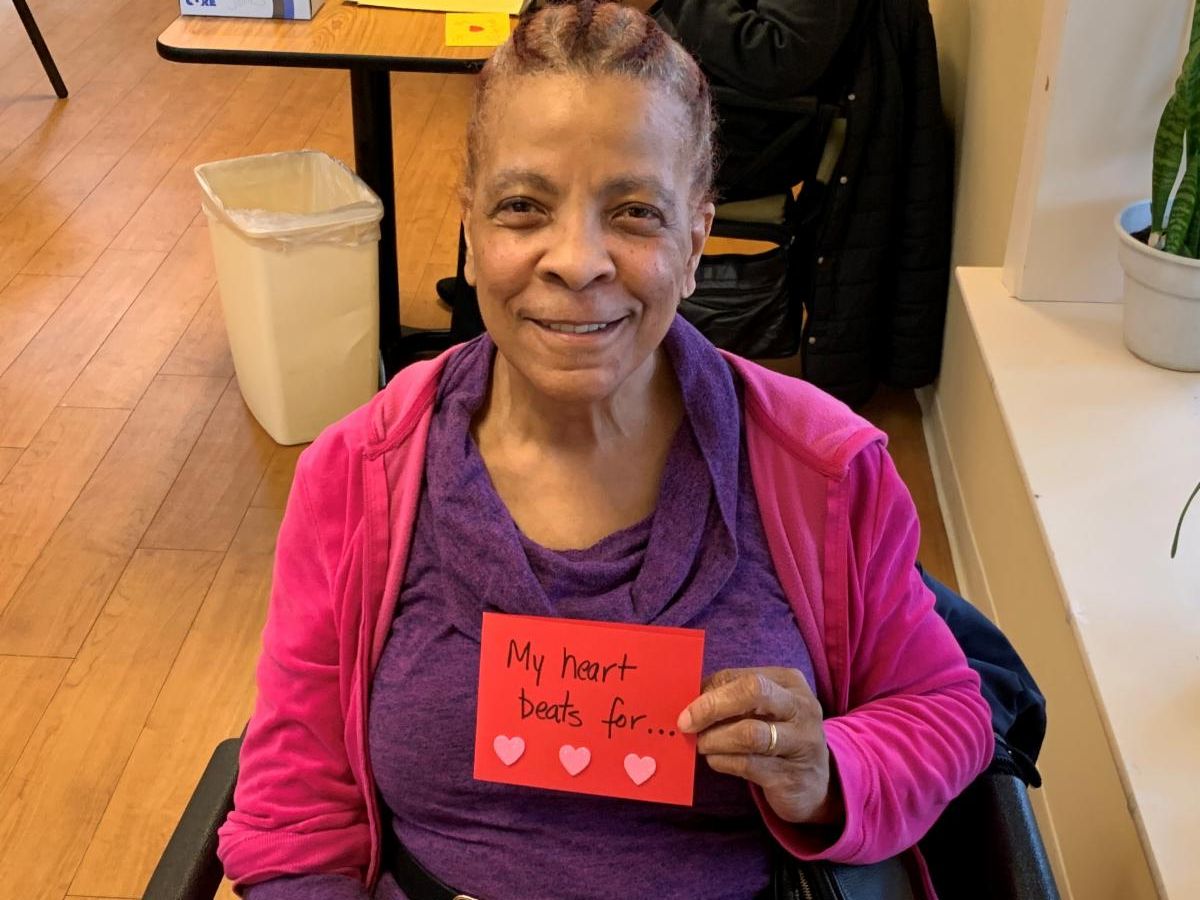 My heart
beats for...